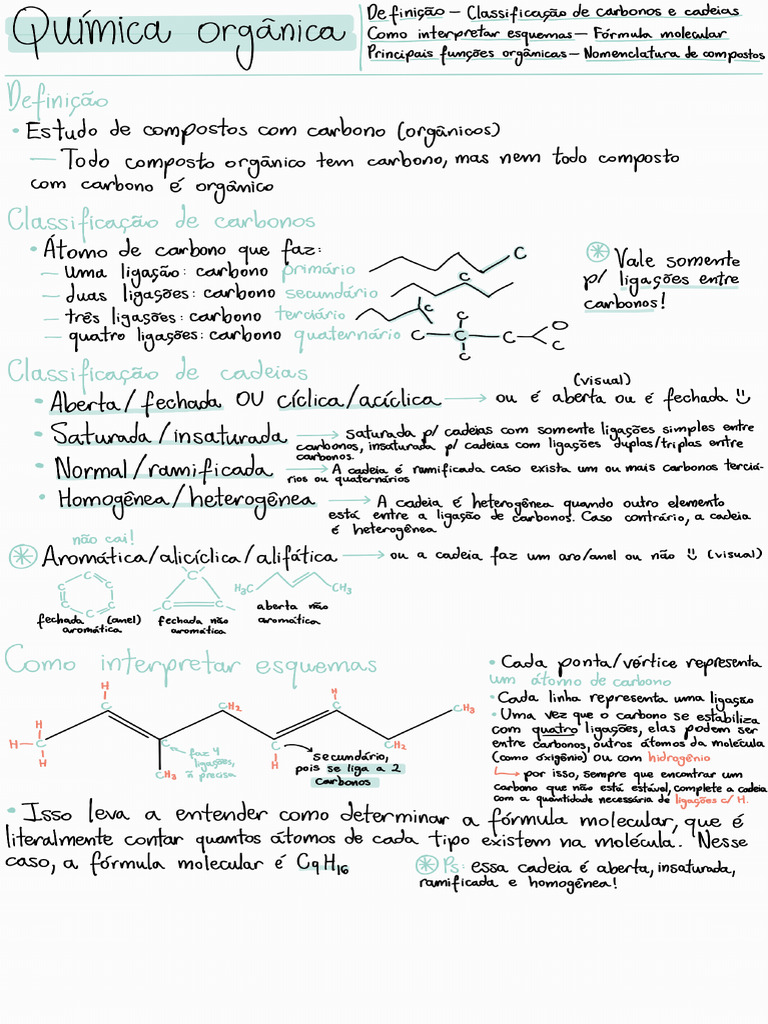 Química orgânica
Definição — Classificação de carbonos e cadeias
Como interpretar esquemas — Fórmula molecular
Principais funções orgânicas — Nomenclatura de compostos
Definição
• Estudo de compostos com carbono (orgânicos)
— Todo composto orgânico tem carbono, mas nem todo composto
com carbono é orgânico
Classificação de carbonos
• Átomo de carbono que faz:
— uma ligação: carbono primário
— duas ligações: carbono secundário
— três ligações: carbono terciário
— quatro ligações: carbono quaternário
C
C
C
C
C C C O
C
C
Vale somente
p/ ligações entre
carbonos!
Classificação de cadeias
(visual)
• Aberta/fechada OU cíclica/acíclica → ou é aberta ou é fechada
• Saturada/insaturada → saturada p/ cadeias com somente ligações simples entre
carbonos, insaturada p/ cadeias com ligações duplas/triplas entre
carbonos.
• Normal/ramificada → A cadeia é ramificada caso exista um ou mais carbonos terciá-
rios ou quaternários
• Homogênea/heterogênea → A cadeia é heterogênea quando outro elemento
está entre a ligação de carbonos. Caso contrário, a cadeia
é heterogênea
não cai!
Aromática/alicíclica/alifática → ou a cadeia faz um aro/anel ou não (visual)
C C C C C C
C C C
H₃C CH₃
fechada (anel)
aromática
fechada não
aromática
aberta não
aromática
Como interpretar esquemas
H
C
H
H—C
H
C
faz 4
ligações,
já precisa
CH₃
CH₂
C
H
H
C
CH₂
CH₃
secundário,
pois se liga a 2
carbonos
• Cada ponta/vértice representa
um átomo de carbono
• Cada linha representa uma ligação
• Uma vez que o carbono se estabiliza
com quatro ligações, elas podem ser
entre carbonos, outros átomos da molécula
(como oxigênio) ou com hidrogênio
→ por isso, sempre que encontrar um
carbono que não está estável, complete a cadeia
com a quantidade necessária de ligações c/ H.
• Isso leva a entender como determinar a fórmula molecular, que é
literalmente contar quantos átomos de cada tipo existem na molécula. Nesse
caso, a fórmula molecular é C₉H₁₆
Ps: essa cadeia é aberta, insaturada,
ramificada e homogênea!